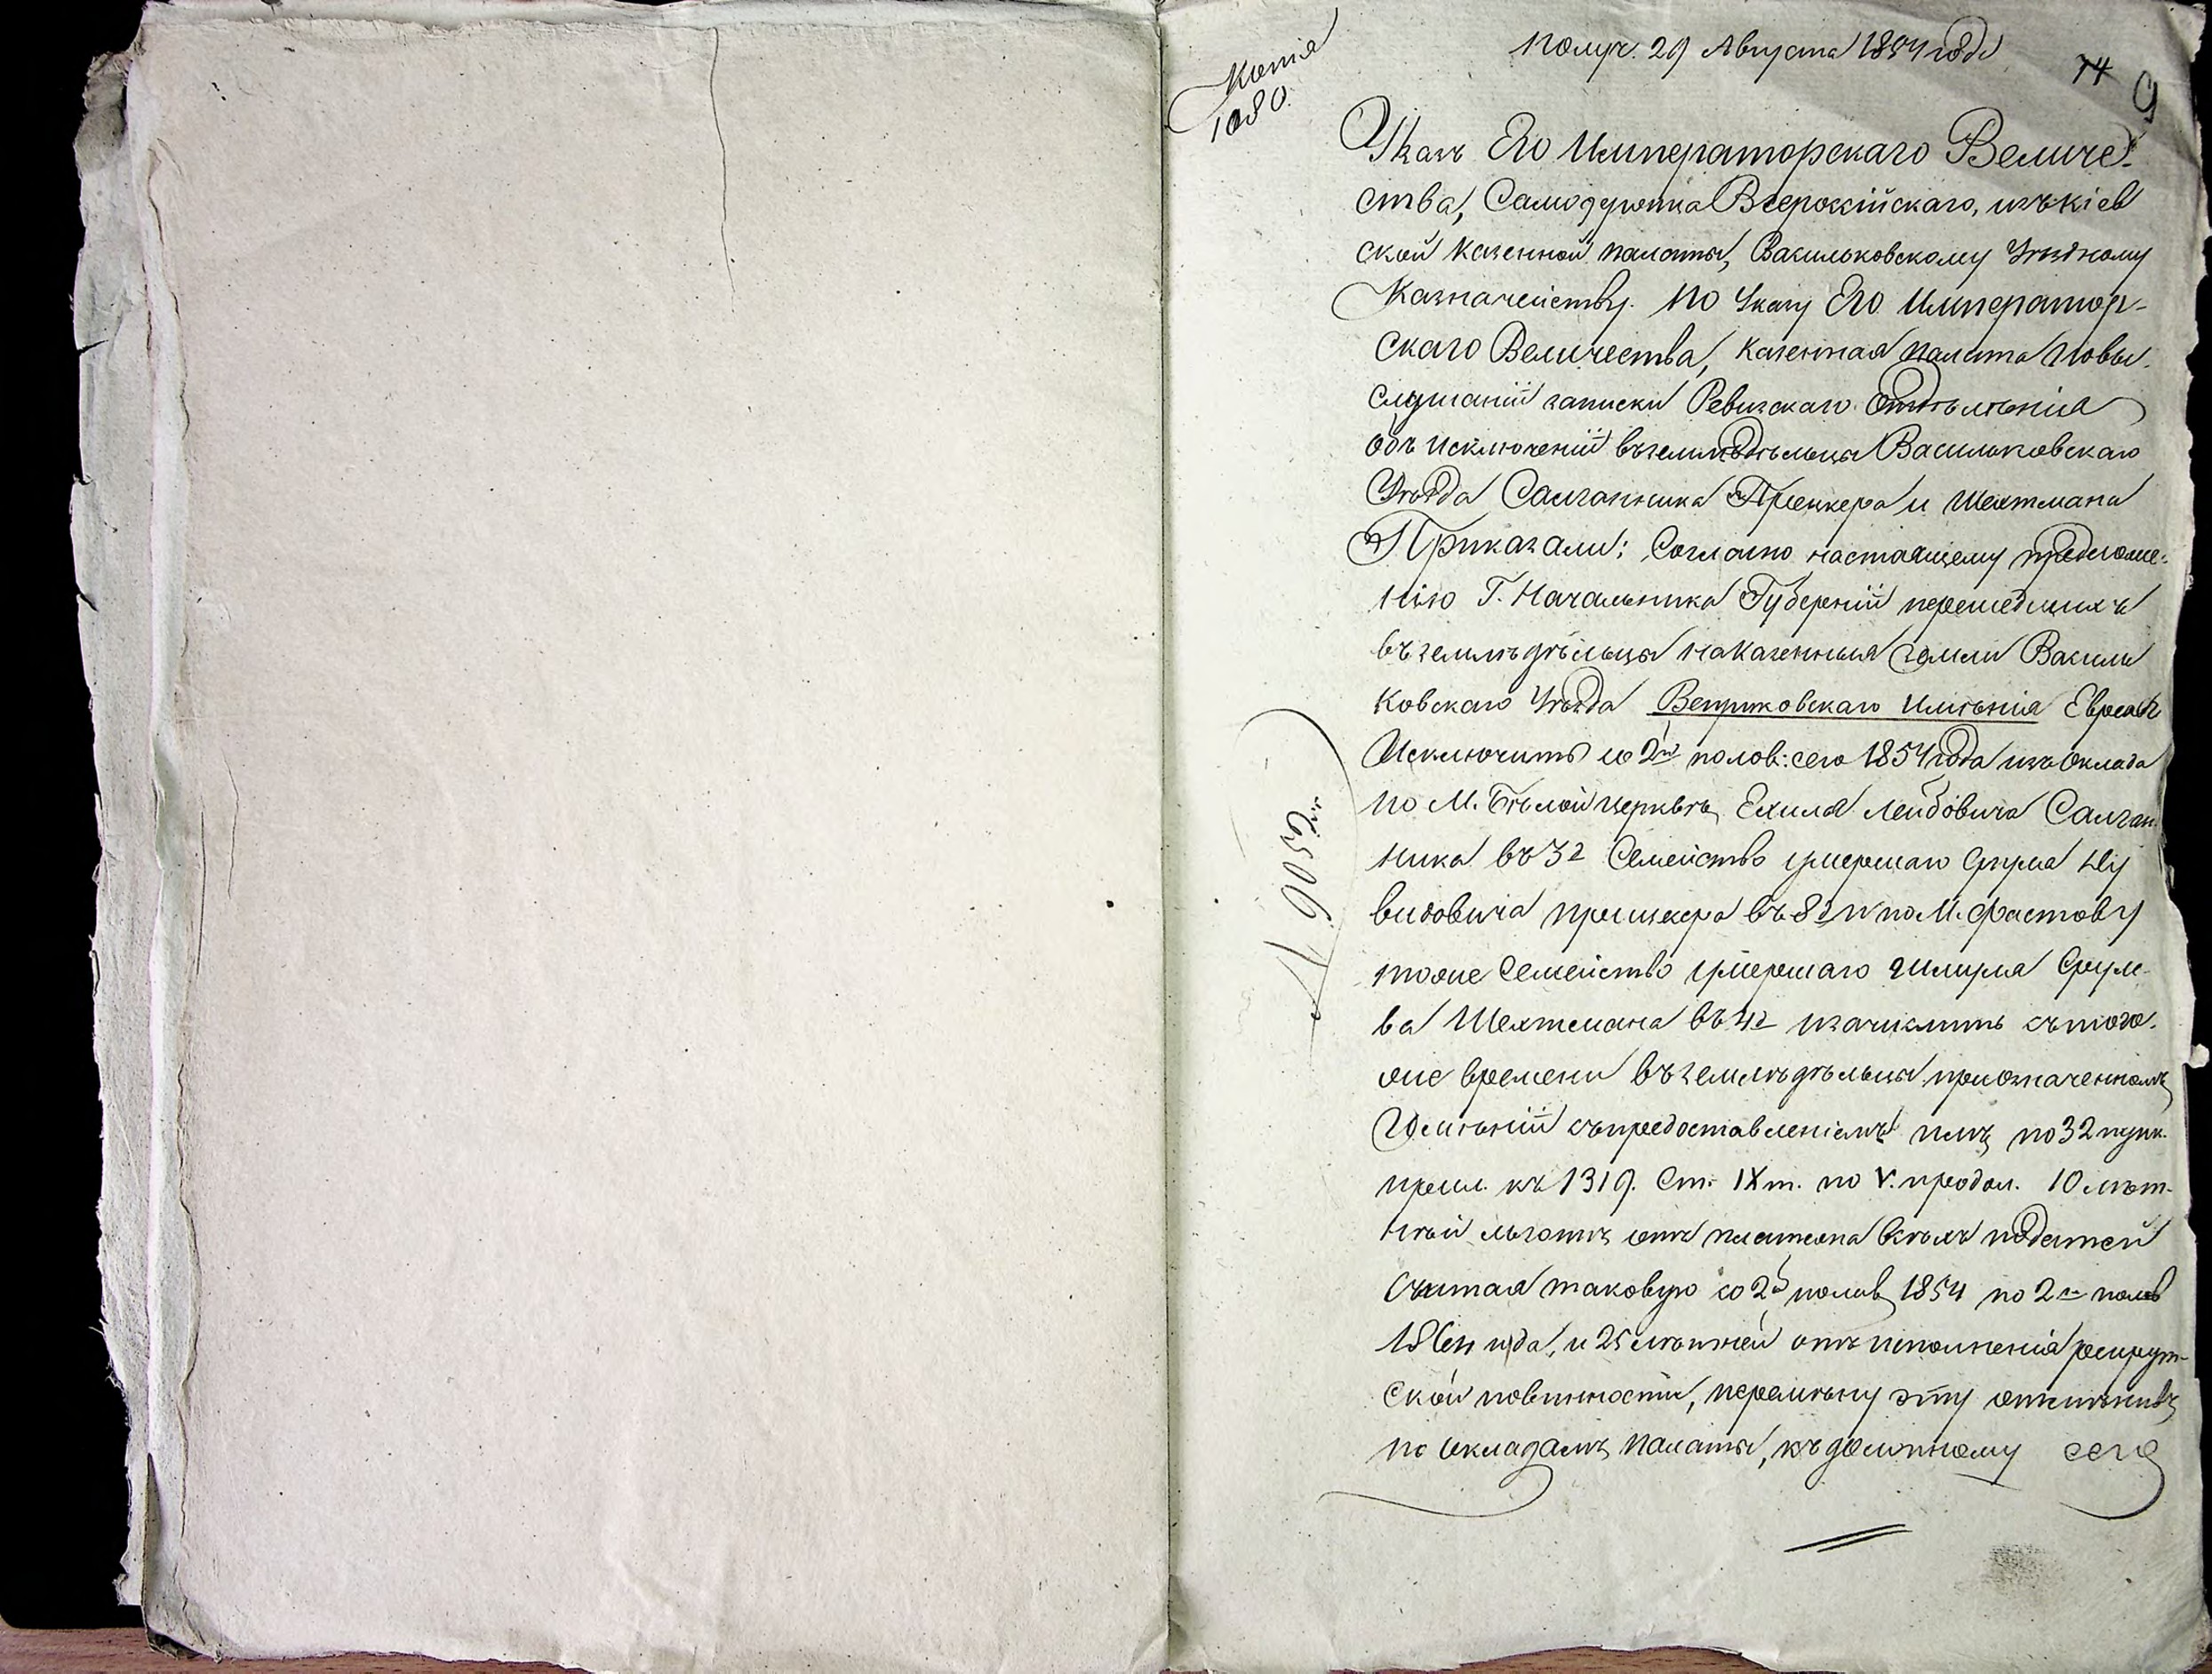 Копія
1080.
Получ. 29 Августа 1854 года
74
9
Указъ Его Императорскаго Величе-
ства, Самодержца Всероссійскаго, изъ Кіев
ской Казенной палаты, Васильковскому Уѣздному
Казначейству. По Указу Его Император-
скаго Величества, Казенная палата По вы-
слушаніи записки Ревизскаго Отдѣленія
объ исключеніи въ земледѣльцы Васильковскаго
Уѣзда Салганника и Шехтмана
Приказали: Согласно настоящему предложе-
нію Г. Начальника Губерніи перешедшихъ
въ земледѣльцы на Казенныя земли Василь
ковскаго Уѣзда Веприковскаго Имѣнія Евреевъ
Исключить со 2й полов: сего 1854 года изъ Оклада
по М. Бѣлой церквѣ, Ехиля Лейбовича Салган
ника въ 32 Семейство умершаго Сруля
въ 82 и по М. Фастову
тоже Семейство умершаго Шмуля Сруле-
ва Шехтмана въ 42 и зачислить съ того-
же времени въ земледѣльцы при означенномъ
Имѣніи съ предоставленіемъ имъ по 32 пунк.
прил. къ 1319. Ст. IX т. по V. продол. 10 лѣт-
ней льготы отъ платежа всѣхъ податей
Считая таковую со 2й полов 1854 по 2ю полов
1864 года, и 25 лѣтней отъ исполненія рекрут-
ской повинности, перемѣну эту отмѣнивъ
по окладамъ палаты, къ должному сего
№ 9052